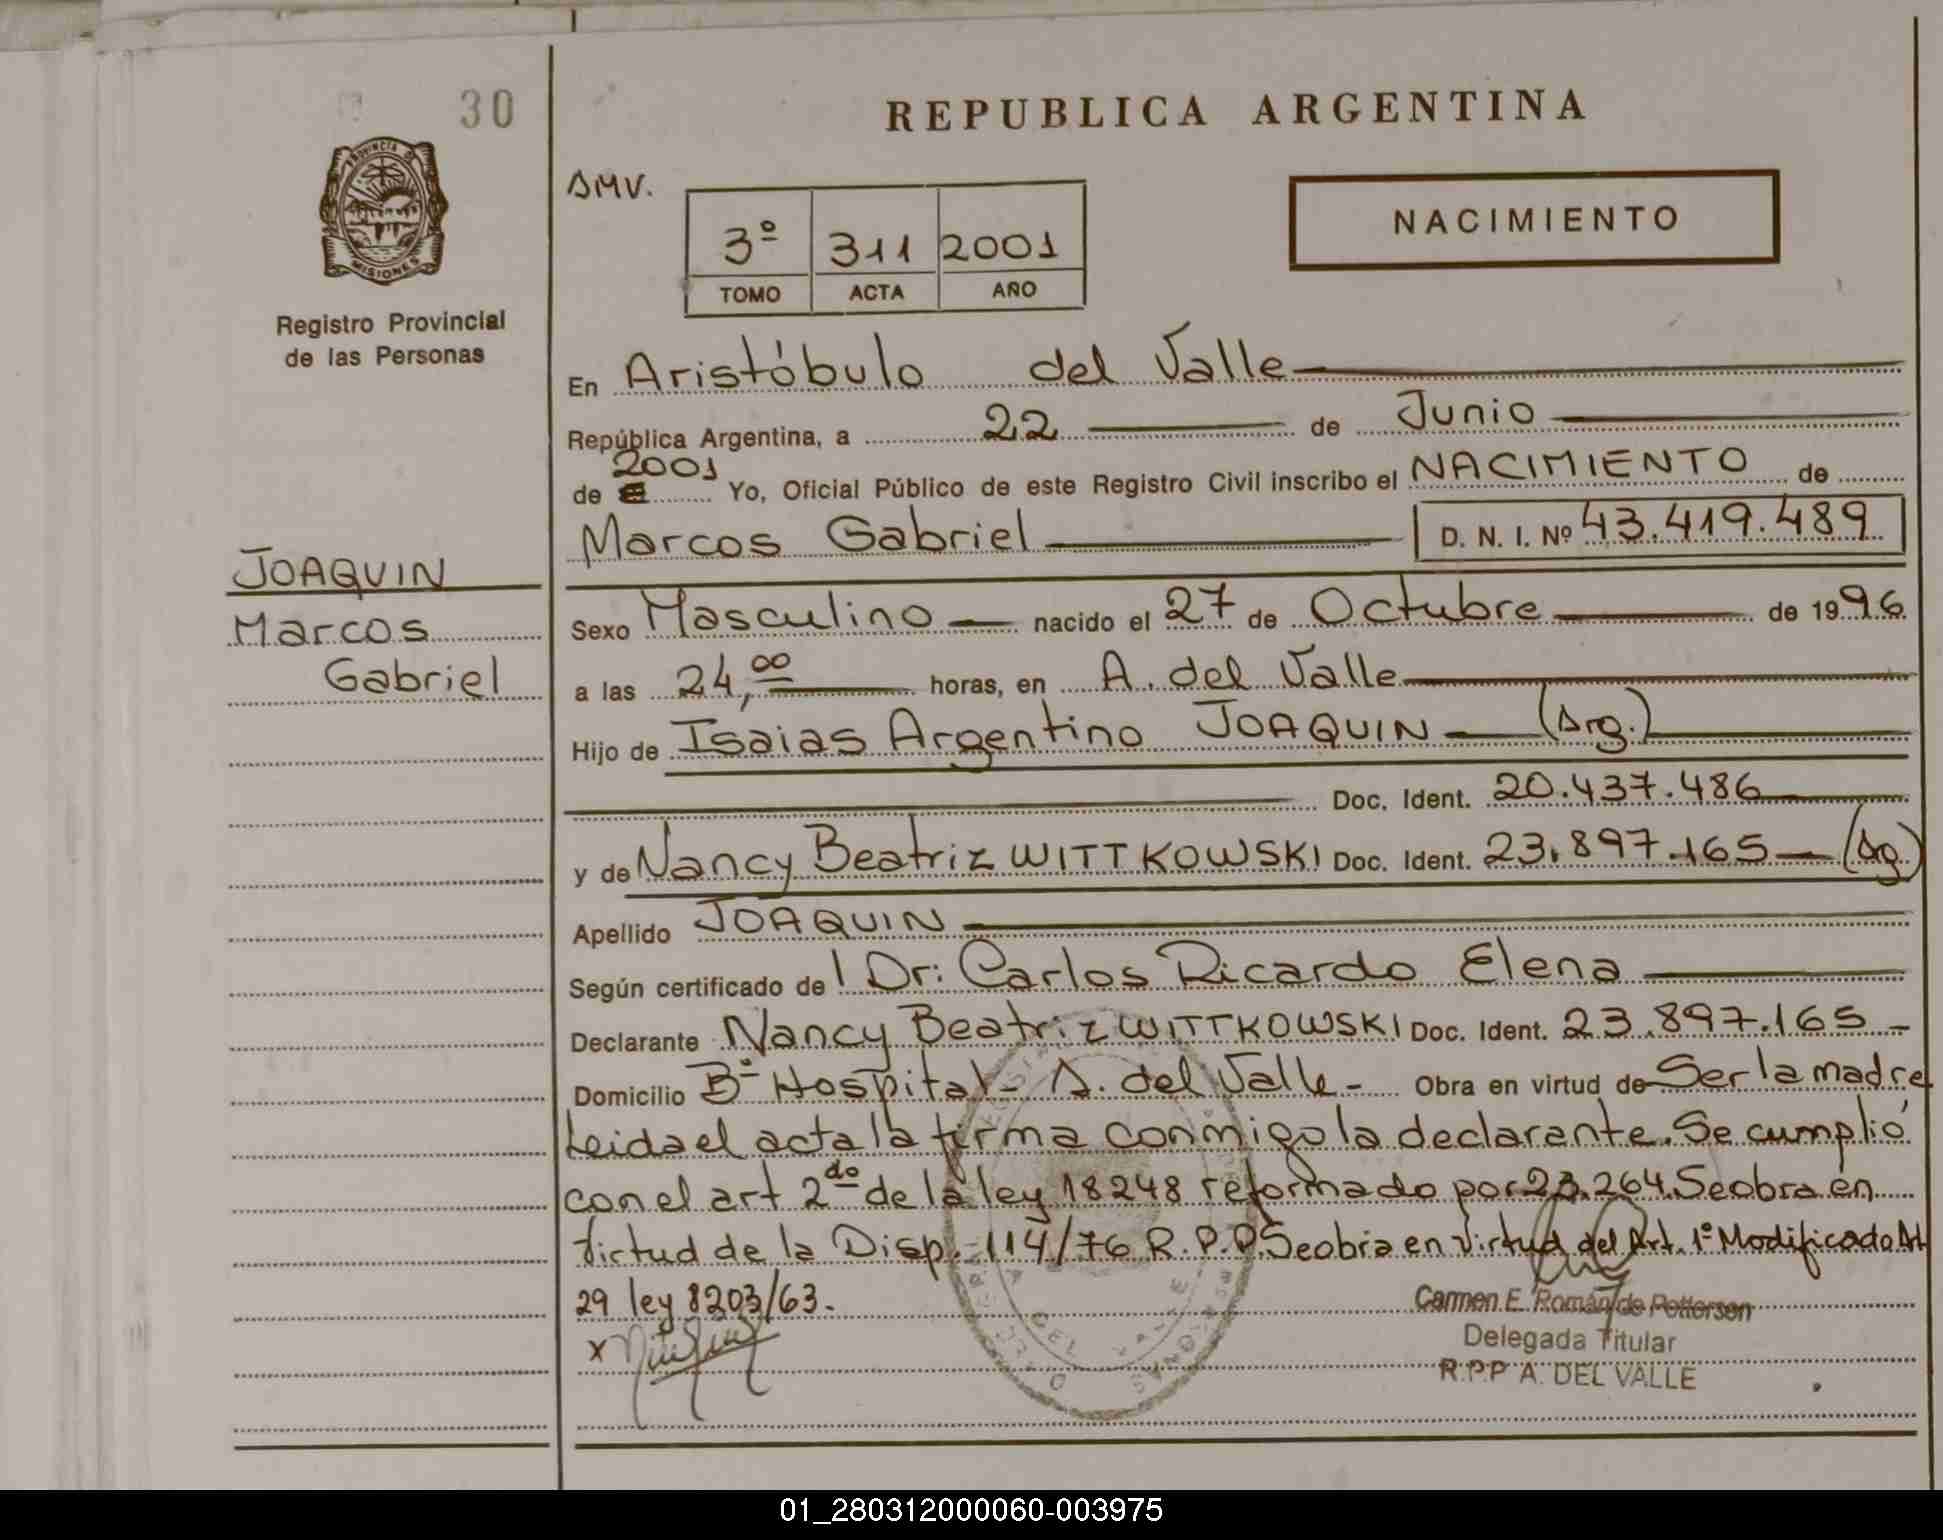 30
PROVINCIA DE
MISIONES
Registro Provincial
de las Personas
JOAQUIN
Marcos
Gabriel
REPUBLICA ARGENTINA
AMV.
NACIMIENTO
3º 311 2001
TOMO ACTA AÑO
En Aristóbulo del Valle
República Argentina, a 22 de Junio
2001
de Yo, Oficial Público de este Registro Civil inscribo el NACIMIENTO de
Marcos Gabriel D. N. I. Nº 43.419.489
Sexo Masculino nacido el 27 de Octubre de 1996
a las 24,00 horas, en A. del Valle
Hijo de Isaias Argentino JOAQUIN (Arg.)
Doc. Ident. 20.437.486
y de Nancy Beatriz WITTKOWSKI Doc. Ident. 23.897.165 (Arg)
Apellido JOAQUIN
Según certificado de l Dr: Carlos Ricardo Elena
Declarante Nancy Beatriz WITTKOWSKI Doc. Ident. 23.897.165
Domicilio Bº Hospital - A. del Valle - Obra en virtud de Ser la madre
Leida el acta la firma conmigo la declarante. Se cumplió
con el art 2do de la ley 18248 reformado por 23.264. Se obra en
virtud de la Disp. 114/76 R.P.P. Se obra en virtud del Art. 1º Modificado Art
29 ley 8203/63.
x
Carmen E. Román de Pettersen
Delegada Titular
R.P.P A. DEL VALLE
01_280312000060-003975